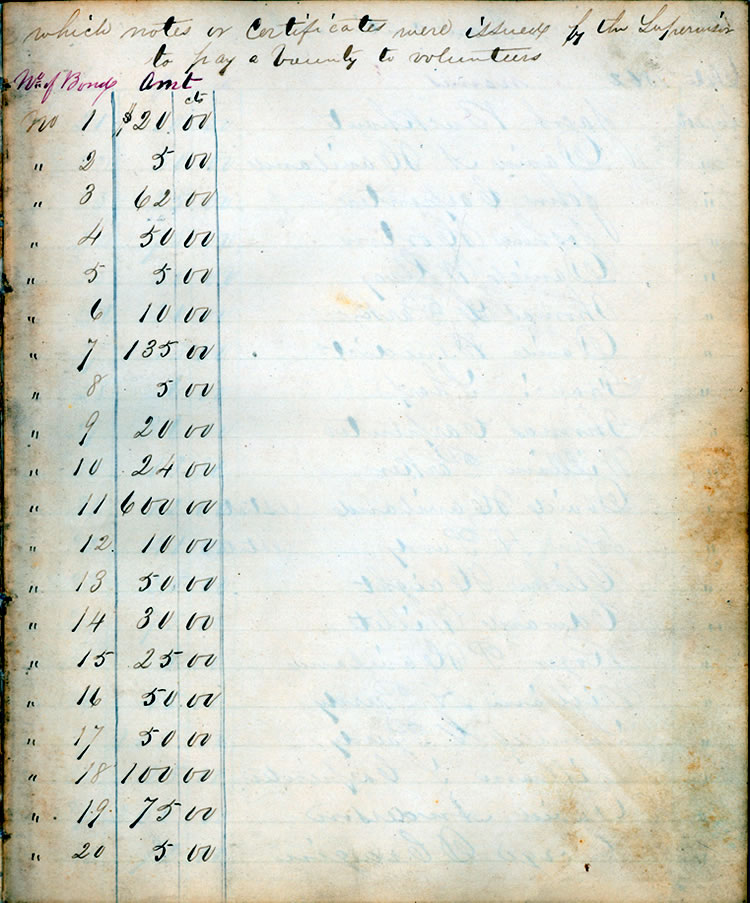 which notes or certificates were issued by the Supervisor
to pay a bounty to volunteers
No of Bond Amt
cts
no 1 $20 00
" 2 5 00
" 3 62 00
" 4 50 00
" 5 5 00
" 6 10 00
" 7 135 00
" 8 5 00
" 9 20 00
" 10 24 00
" 11 600 00
" 12 10 00
" 13 50 00
" 14 30 00
" 15 25 00
" 16 50 00
" 17 50 00
" 18 100 00
" 19 75 00
" 20 5 00